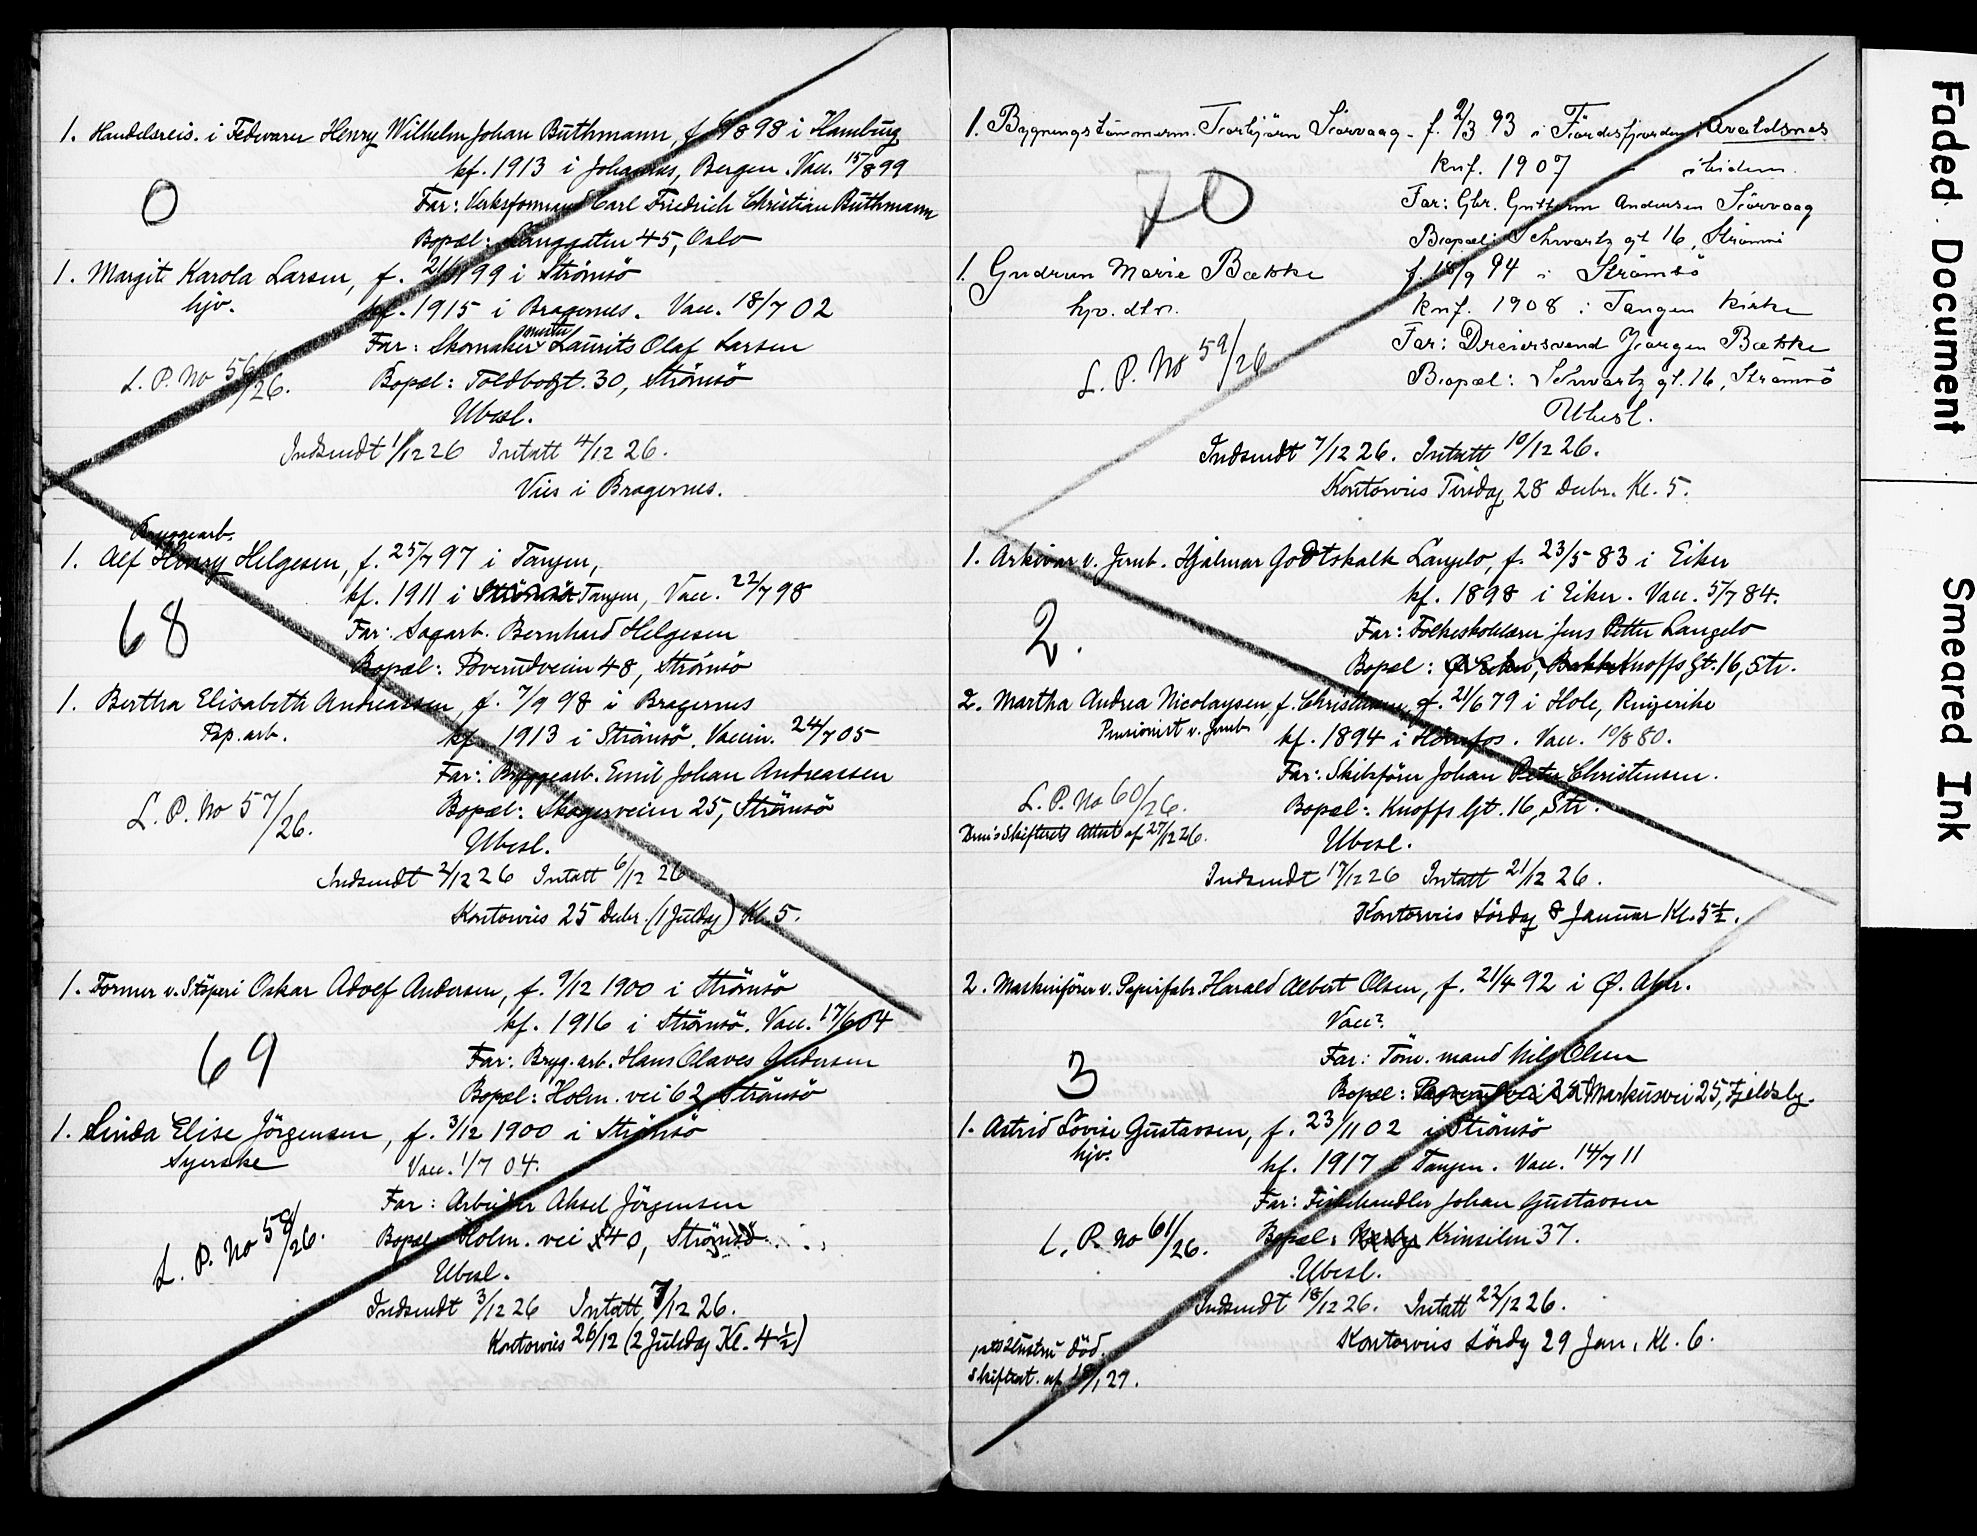 1. Handelsreis. i Fedevarer Henry Wilhelm Johan Büthmann, f. 9/8 98 i Hamburg
kf. 1913 i Johannes, Bergen. Vacc. 15/8 99
0
Far: Verksformand Carl Friedrich Christian Büthmann
Bopæl: Langgaten 45, Oslo
1. Margit Karola Larsen, f. 21/1 99 i Strömsö
hjv.
kf. 1915 i Bragernes. Vacc. 18/7 02
Far: Skomakermester Laurits Olaf Larsen
L. P. No 56/26.
Bopæl: Toldbodgt. 30, Strömsö
Ubesl.
Indsendt 1/12 26 Intatt 4/12 26.
Vies i Bragernes.
Bryggearb.
1. Alf Henry Helgesen, f. 25/7 97 i Tangen,
kf. 1911 i Strömsö Tangen, Vacc. 22/7 98
68
Far: Sagarb. Bernhard Helgesen
Bopæl: Poverudveien 48, Strömsö
1. Bertha Elisabeth Andreassen, f. 7/9 98 i Bragernes
Pap. arb.
kf. 1913 i Strömsö, Vaccin. 24/7 05
Far: Bryggearb. Emil Johan Andreassen
L. P. No 57/26.
Bopæl: Skogerveien 25, Strömsö
Ubesl.
Indsendt 2/12 26 Intatt 6/12 26
Kontorvies 25 Decbr. (1 Juldag) Kl. 5.
1. Former v. Stöperi Oskar Adolf Andersen, f. 9/12 1900 i Strömsö
kf. 1916 i Strömsö. Vacc. 17/6 04
69
Far: Bryg. arb. Hans Olaves Andersen
Bopæl: Holm. vei 62 Strömsö
1. Linda Elise Jörgensen, f. 3/12 1900 i Strömsö
Syerske
Vacc. 1/7 04.
Far: Arbeider Aksel Jörgensen
L. P. No 58/26.
Bopæl Holm. vei 40, Strömsö
Ubesl.
Indsendt 3/12 26 Intatt 7/12 26.
Kontorvies 26/12 (2 Juledag Kl. 4 1/2)
1. Bygningstömmerm. Torbjörn Sörvaag - f. 9/3 93 i Fördesfjorden i Avaldsnes
Knf. 1907 - ibidem.
70
Far: Gbr. Guttorm Andersen Sörvaag
Bopæl: Schwartz gt 16, Strömsö
1. Gudrun Marie Bække f. 18/9 94 i Strömsö
hjv. dtr.
Knf. 1908 i Tangen Kirke
Far: Dreiersvend Jörgen Bække
L. P. No 59/26
Bopæl: Schwartz gt. 16, Strömsö
Ubesl.
Indsendt 7/12 26. Intatt 10/12 26.
Kontorvies Tirsdag 28 Decbr. Kl. 5.
1. Arkivar v. Jernb. Hjalmar Godtskalk Langelo, f. 23/5 83 i Eiker
kf. 1898 i Eiker. Vacc. 5/7 84.
2.
Far: Folkeskolelærer Jens Petter Langelo
Bopæl: Ø. Eiker, Bakke Knoffs Gt. 16, Str.
2. Martha Andrea Nicolaysen, f. Christensen, f. 21/6 79 i Hole, Ringerike
Pensionist v. Jernb.
kf. 1894 i Hönefos. Vacc. 10/8 80.
Far: Skibsförer Johan Peter Christensen.
L. P. No 60/26.
Bopæl: Knoffs Gt. 16, Str.
Drm's Skifterets Attest af 27/12 26.
Ubesl.
Indsendt 17/12 26 Intatt 21/12 26.
Kontorvies Lördag 8 Januar Kl. 5 1/2.
2. Maskinförer v. Papirfabr. Harald Albert Olsen, f. 21/4 92 i Ø. Aker.
Vacc?
3
Far: Töm. mand Nils Olsen
Bopæl: Markusvei 25, Fjeldsby.
1. Astrid Lovise Gustavsen, f. 23/11 02 i Strömsö
hjv.
kf. 1917 i Tangen. Vacc. 14/7 11
Far: Fiskehandler Johan Gustavsen
L. P. No 61/26.
Bopæl: Krinsilen 37.
Ubesl.
Indsendt 18/12 26. Intatt 22/12 26.
Kontorvies Lördag 29 Jan. Kl. 6.
Hustru död.
Skifteat. af 18/1 27.
Faded Document
Smeared Ink